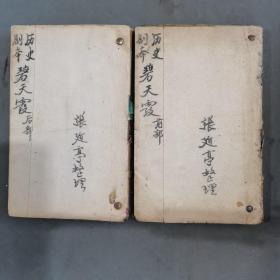 历史
剧本
碧天霞 后部
张进亭整理
历史
剧本
碧天霞 前部
张进亭整理